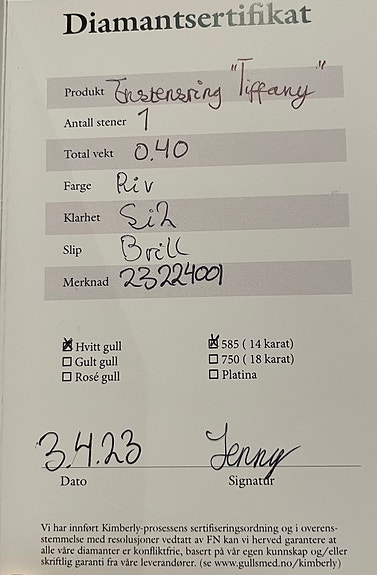 Diamantsertifikat
Produkt Enstensring "Tiffany"
Antall stener 1
Total vekt 0.40
Farge Riv
Klarhet Si2
Slip Brill
Merknad 23224001
☒ Hvitt gull ☒ 585 ( 14 karat)
☐ Gult gull ☐ 750 ( 18 karat)
☐ Rosé gull ☐ Platina
3.4.23 Jenny
Dato Signatur
Vi har innført Kimberly-prosessens sertifiseringsordning og i overens-
stemmelse med resolusjoner vedtatt av FN kan vi herved garantere at
alle våre diamanter er konfliktfrie, basert på vår egen kunnskap og/eller
skriftlig garanti fra våre leverandører. (se www.gullsmed.no/kimberly)